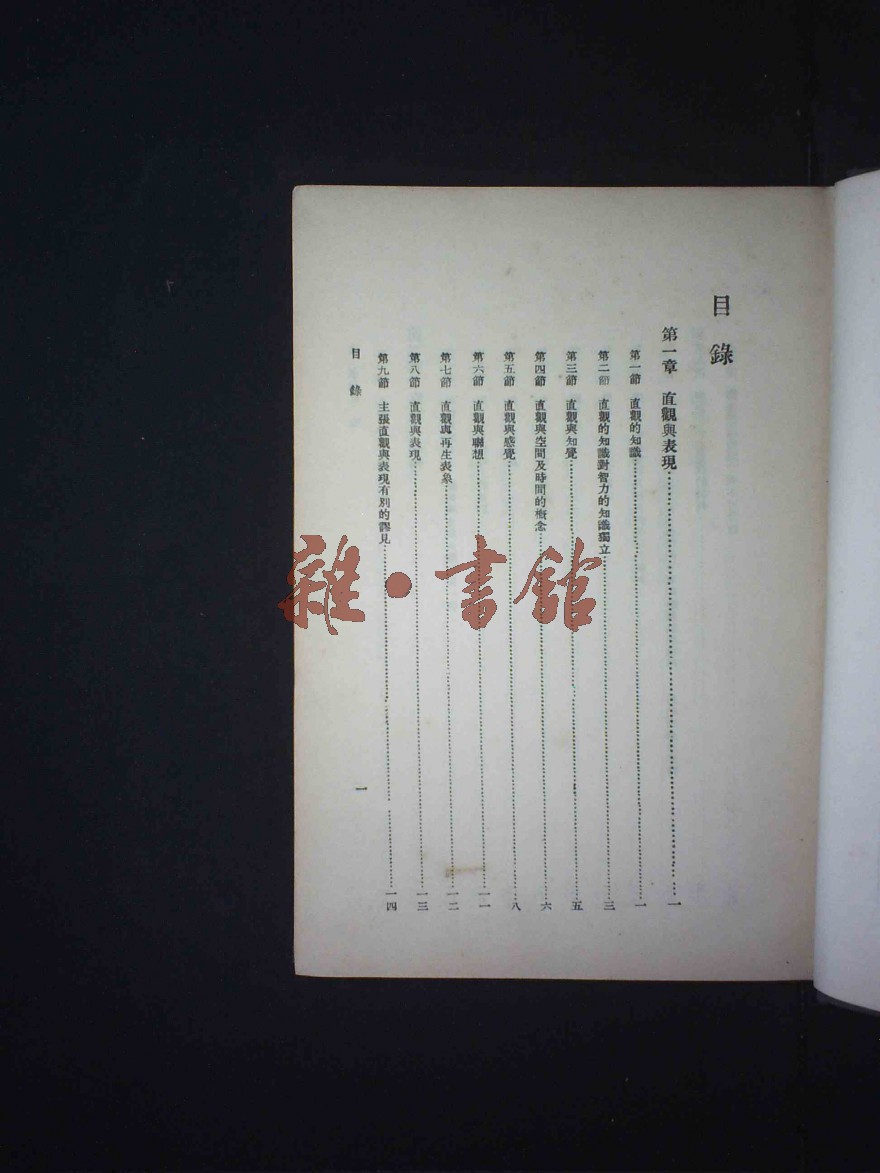 目錄
第一章　直觀與表現……一
第一節　直觀的知識……一
第二節　直觀的知識對智力的知識獨立……三
第三節　直觀與知覺……五
第四節　直觀與空間及時間的概念……六
第五節　直觀與感覺……八
第六節　直觀與聯想……一一
第七節　直觀與再生表象……一二
第八節　直觀與表現……一三
第九節　主張直觀與表現有別的謬見……一四
目錄
一
雜·書館